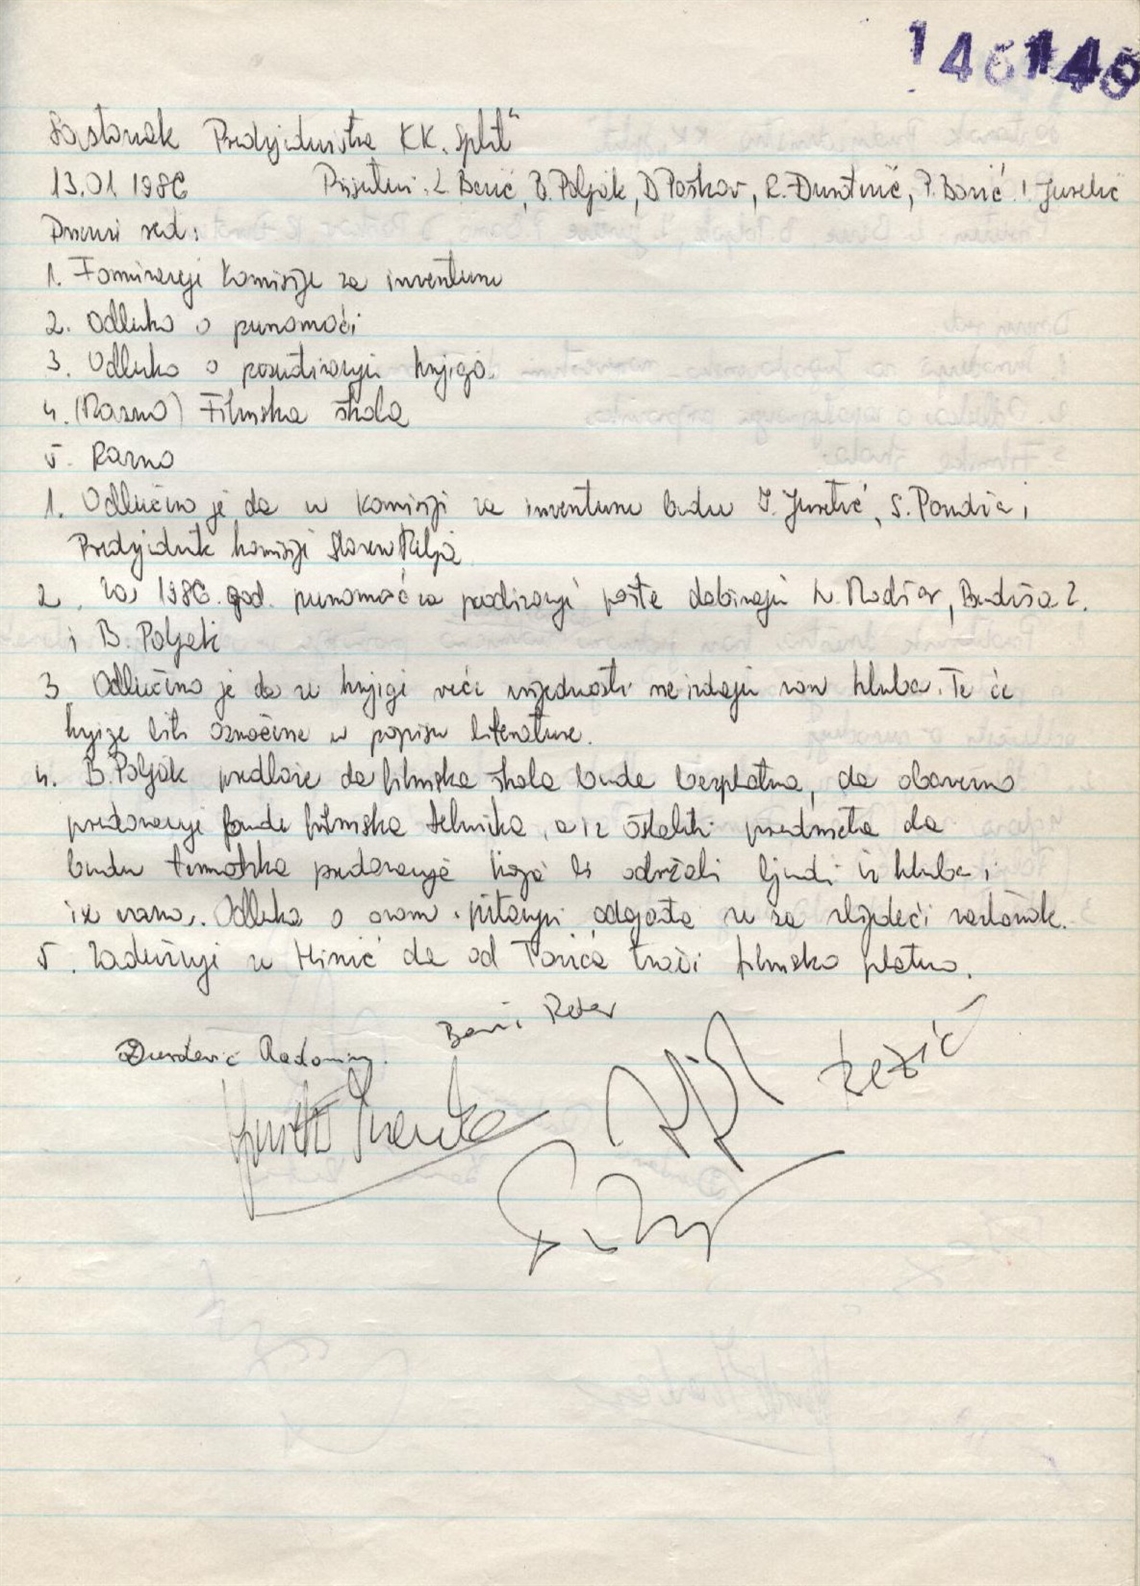 146 145
Sastanak Predsjedništva KK. Split"
13.01 1986 Prisutni: Z. Benić, B. Poljak, D Poskov, R. Đurđević, P. Borić i Juretić
Dnevni red:
1. Formiranje Komisije za inventuru
2. Odluka o punomoći
3. Odluka o posuđivanju knjiga.
4. (Razno) Filmska škola
5. Razno
1. Odlučeno je da u Komisiji za inventuru budu I. Juretić, S. Pandža i
Predsjednik komisije Slaven
2. Za 1986. god. punomoć za podizanje pošte dobivaju N. Modšar, Bandiša Z.
i B. Poljak
3 Odlučeno je da se knjige veće vrijednosti ne izdaju van kluba. Te će
knjige biti označene u popisu literature.
4. B. Poljak predlaže da filmska škola bude besplatna, da obavezno
predavanje bude filmska tehnika, a iz ostalih predmeta da
budu tematska predavanja koja bi održali ljudi iz kluba i
iz vana. Odluka o ovom pitanju odgađa se za sljedeći sastanak.
5. Zadužuje se Mimić da od Tarića traži filmsko platno.
Đurđević Radomir.
Režić